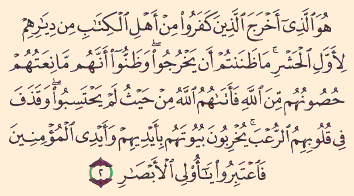 هُوَ ٱلَّذِىٓ أَخْرَجَ ٱلَّذِينَ كَفَرُوا۟ مِنْ أَهْلِ ٱلْكِتَٰبِ مِن دِيَٰرِهِمْ
لِأَوَّلِ ٱلْحَشْرِ ۚ مَا ظَنَنتُمْ أَن يَخْرُجُوا۟ ۖ وَظَنُّوٓا۟ أَنَّهُم مَّانِعَتُهُمْ
حُصُونُهُم مِّنَ ٱللَّهِ فَأَتَىٰهُمُ ٱللَّهُ مِنْ حَيْثُ لَمْ يَحْتَسِبُوا۟ ۖ وَقَذَفَ
فِى قُلُوبِهِمُ ٱلرُّعْبَ ۚ يُخْرِبُونَ بُيُوتَهُم بِأَيْدِيهِمْ وَأَيْدِى ٱلْمُؤْمِنِينَ
فَٱعْتَبِرُوا۟ يَٰٓأُو۟لِى ٱلْأَبْصَٰرِ ٢